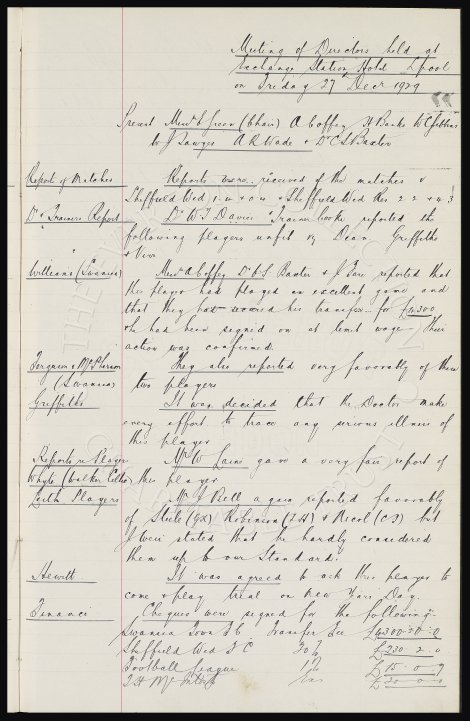 Meeting of Directors held at
Exchange Station Hotel L'pool
on Friday 27 Decr 1929
Present Messrs E Green (Chair) A Coffey H Banks W C Gibbins
W J Sawyer A R Wade & Dr C S Baxter
Report of Matches Reports were received of the matches v
Sheffield Wed 1. 4 & 0 4 & Sheffield Wed Res 2 2 & 4 3
Dr & Trainers Report Dr W J Davies & Trainer Cooke reported the
following players unfit viz Dean Griffiths
Williams (Swansea) Messrs A Coffey Dr C S Baxter & J reported that
this player had played an excellent game and
that they had secured his transfer for £4300
& he had been signed on at limit wage. Their
action was confirmed
Ferguson & McPherson (Swansea) They also reported very favorably of these
two players
Griffiths It was decided that the Doctor make
every effort to trace any serious illness of
this player
Reports re Player Mr W gave a very fair report of
Whyte (Walker Celtic) this player
Leith Players Mr J Bell again reported favorably
of Steele (GK) Robinson (LH) & Nicol (CF) but
J Weir stated that he hardly considered
them up to our Standard.
Hewitt It was agreed to ask this player to
come & play trial on New Years Day.
Finance Cheques were signed for the following:-
Swansea Town FC Transfer Fee £4300 - 0 - 0
Sheffield Wed F C £230 2 0
Football League £15 0 9